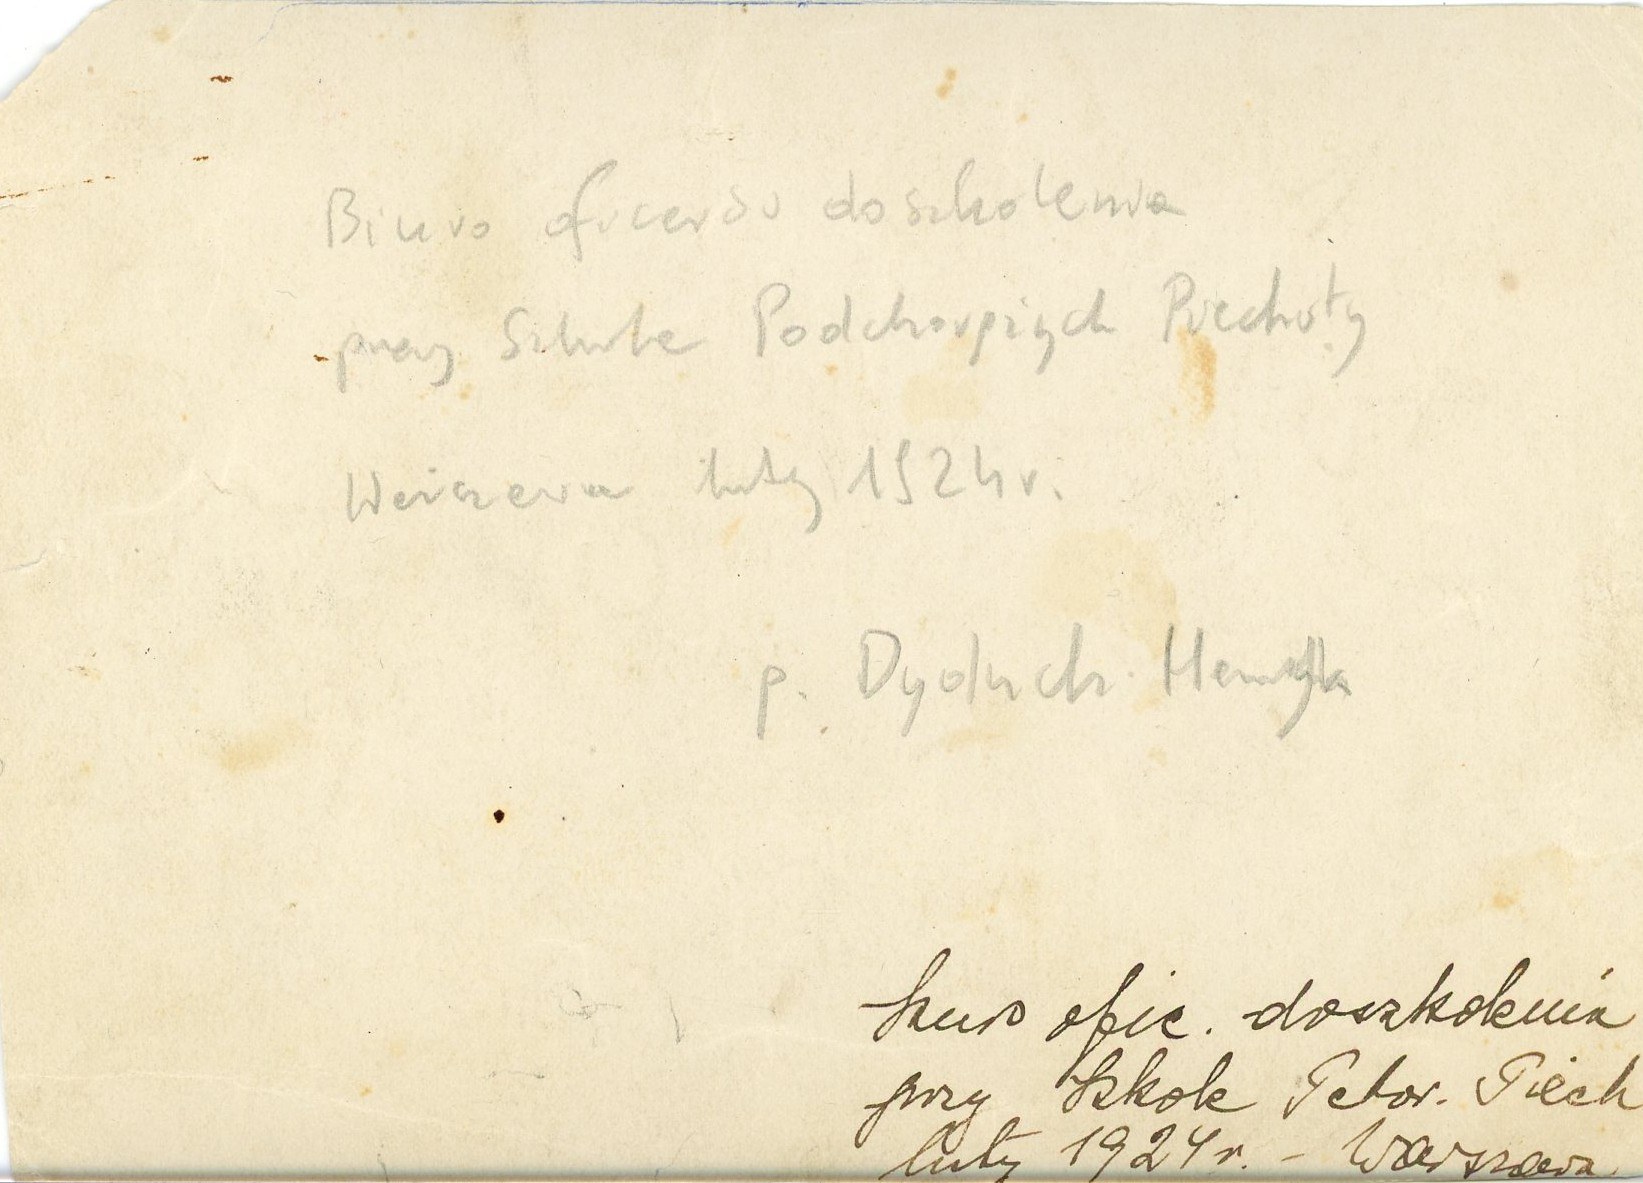 Biuro oficersu doszkolenia
przy Szkole Podchorążych Piechoty
Warszawa luty 1924 r.
p. Dyduch Henryk
kurs ofic. doszkolenia
przy Szkole Pchor. Piech
luty 1924 r. - Warszawa